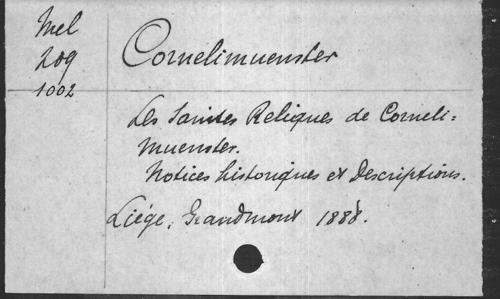 Mel
209
1002
Cornelimuenster
Les Saintes Reliques de Corneli=
muenster.
Notices historiques et Descriptions.
Liége, Grandmont 1888.